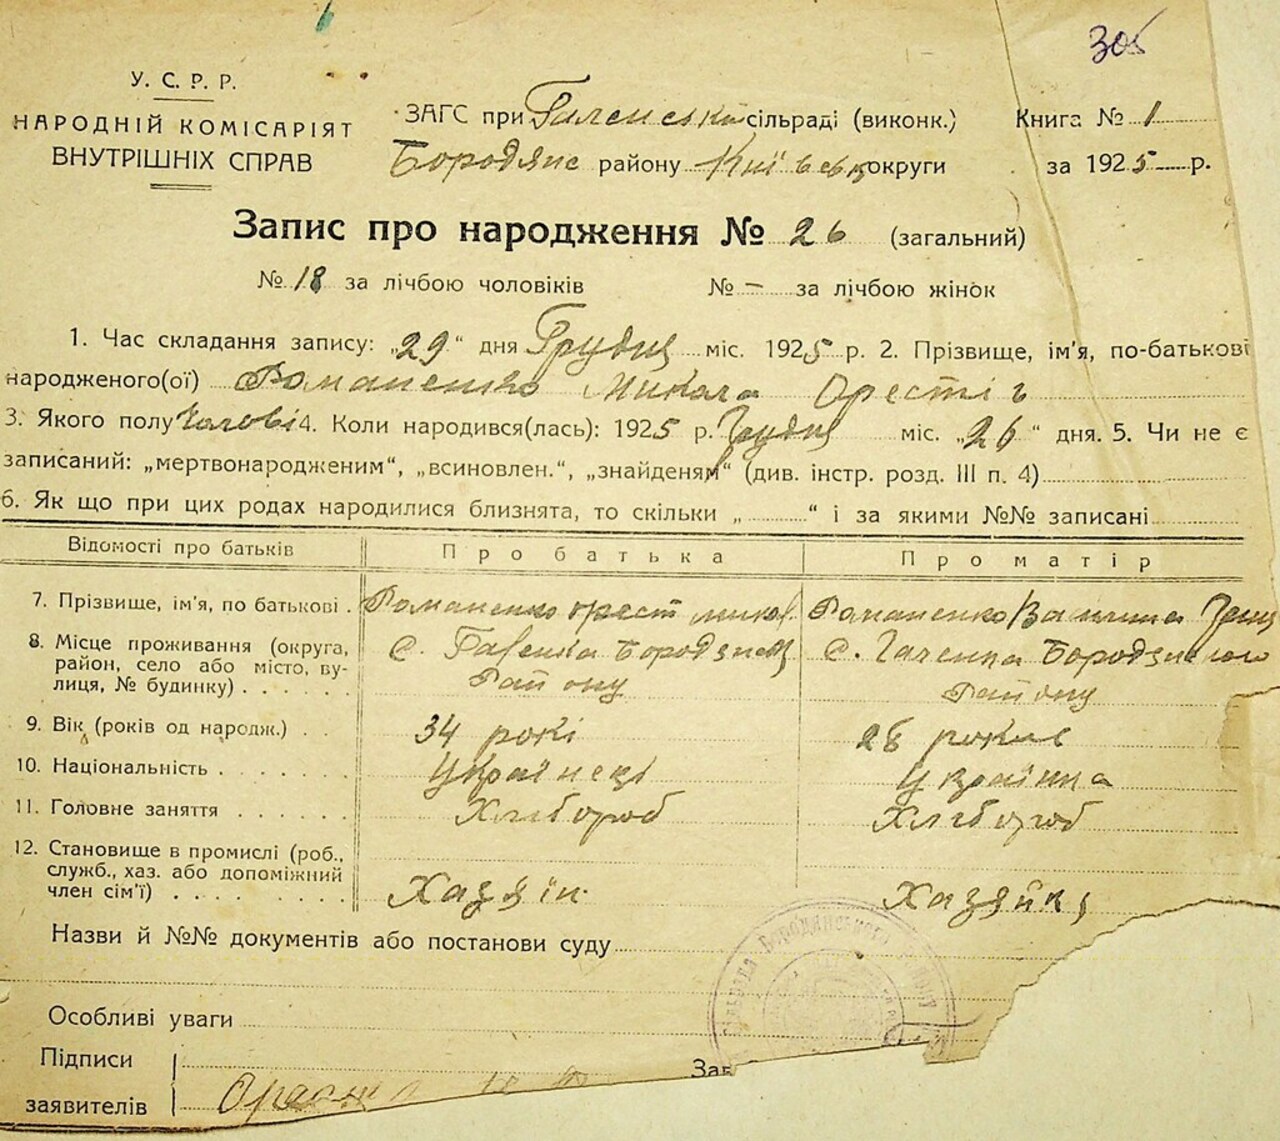 305
У. С. Р. Р.
НАРОДНІЙ КОМІСАРІЯТ
ВНУТРІШНІХ СПРАВ
ЗАГС при сільраді (виконк.)
Бородянс району округи
Книга № 1
за 1925 р.
Запис про народження № 26 (загальний)
№ 18 за лічбою чоловіків № – за лічбою жінок
1. Час складання запису: „29“ дня Грудня міс. 1925 р. 2. Прізвище, ім'я, по-батькові
народженого(ої) Романенко Микола Орестів
3. Якого полу Чолові 4. Коли народився(лась): 1925 р. Грудня міс. „26“ дня. 5. Чи не є
записаний: „мертвонародженим“, „всиновлен.“, „знайденям“ (див. інстр. розд. III п. 4)
6. Як що при цих родах народилися близнята, то скільки „ “ і за якими №№ записані
Відомості про батьків Про батька Про матір
7. Прізвище, ім'я, по батькові . Романенко Орест Микол. Романенко Василина
8. Місце проживання (округа, район, село або місто, вулиця, № будинку) . . . . . . с. Бородянськ Району с. Бородянського Району
9. Вік (років од народж.) . . 34 рокі 28 років
10. Національність . . . . . . . Українець Українка
11. Головне заняття . . . . . . Хлібороб Хлібороб
12. Становище в промислі (роб., служб., хаз. або допоміжний член сім'ї) . . . . . . . . Хазяїн. Хазяйка
Назви й №№ документів або постанови суду
Особливі уваги
Підписи
заявителів
Зав
Бородянського